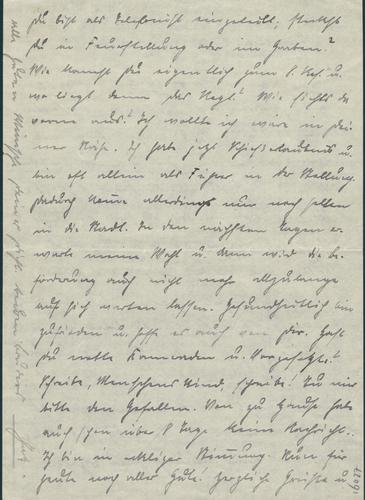 Du bist als Telefonist eingeteilt, steckst
Du in Feuerstellung oder im Graben?
Wie kommst Du eigentlich zum 8. u.
wo liegt denn das Regt.? Wie sieht's da
vorne aus? Ich wollte ich wäre in Dei-
ner Nähe. Ich habe jetzt Schießerlaubnis u.
bin oft allein als Führer in der Stellung.
Dadurch komme allerdings nur noch selten
in die Stadt. In den nächsten Tagen er-
warte meine Wahl u. dann wird die Be-
förderung auch nicht mehr allzulange
auf sich warten lassen. Gesundheitlich bin
zufrieden u. hoffe es auch von Dir. Hast
Du nette Kameraden u. Vorgesetzte?
Schreibe, Menschenskind, schreibe! Tu mir
bitte den Gefallen. Von zu Hause habe
auch schon über 8 Tage keine Nachricht.
Ich bin in Stimmung. Nun für
heute noch alles Gute. Herzliche Grüße u.
alle guten Wünsche
16077